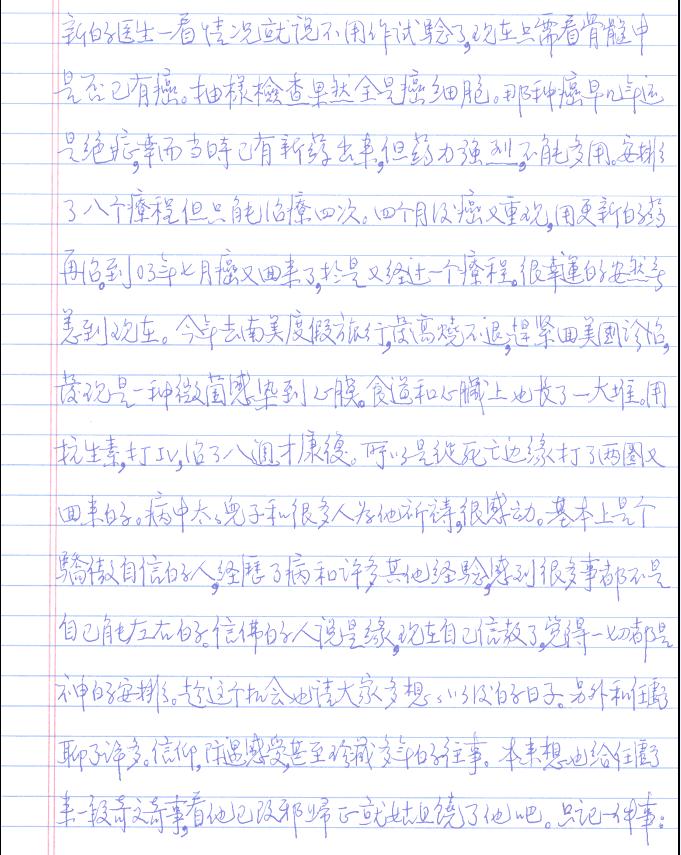 新的医生一看情况就说不用作试驗了,现在只需看骨髓中
是否已有癌。抽樣檢查果然全是癌细胞。那种癌早几年还
是绝症,幸而当時已有新药出来,但药力强烈,不能多用。安排
了八个療程但只能治療四次。四个月後癌又重现,用更新的药
再治。到03年七月癌又回来了,於是又经过一个療程。很幸運的安然
到现在。今年去南美度假旅行,發高燒不退,趕紧回美國診治,
發现是一种微菌感染到心膜。食道和心臟上也长了一大堆。用
抗生素,打IV,治了八週才康復。所以是從死亡边缘打了两圈又
回来的。病中太太兒子和很多人为他祈禱,很感动。基本上是个
驕傲自信的人,经歷了病和许多其他经驗,感到很多事都不是
自己能左右的。信佛的人说是缘,现在自己信教了,觉得一切都是
神的安排。趁这个机会也请大家多想想以後的日子。另外和任
聊了许多。信仰,际遇感受,甚至珍藏多年的往事。本来想也给任
来一段奇文奇事,看他已改邪歸正就姑且饒了他吧。只记一件事: